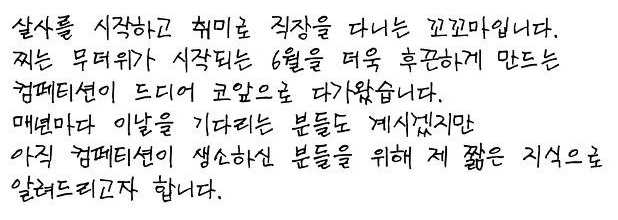 살사를 시작하고 취미로 직장을 다니는 꼬꼬마입니다.
찌는 무더위가 시작되는 6월을 더욱 후끈하게 만드는
컴페티션이 드디어 코앞으로 다가왔습니다.
매년마다 이날을 기다리는 분들도 계시겠지만
아직 컴페티션이 생소하신 분들을 위해 제 짧은 지식으로
알려드리고자 합니다.